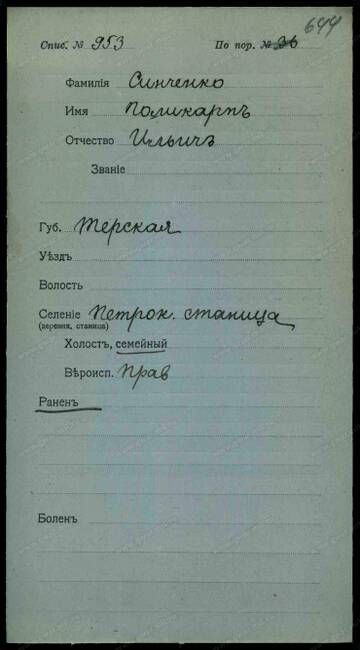 644
Спис. № 953 По пор. № 36
Фамилія Синченко
Имя Поликарпъ
Отчество Ильичъ
Званіе
Губ. Терская
Уѣздъ
Волость
Селеніе Петрок. станица
(деревня, станица)
Холостъ, семейный
Вѣроисп. Прав
Раненъ
Боленъ